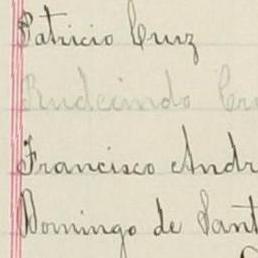 Patricio Cruz
Rudecindo Cru
Francisco Andr
Domingo de Sant